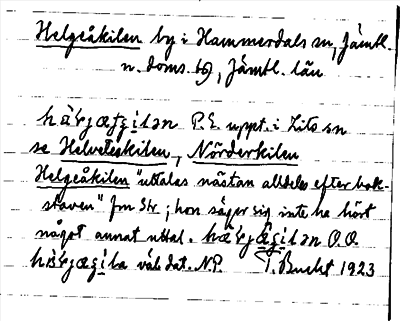 Helgeåkilen by i Hammerdals sn, Jämtl.
n. doms. tg, Jämtl. län
P. E. uppt. i Lits sn
se Helveteskilen, Nörderkilen
Helgeåkilen "uttalas nästan alldeles efter bok-
staven" fm Str; hon säger sig inte ha hört
något annat uttal. O.O.
väb dat. N.P. T. Bucht 1923